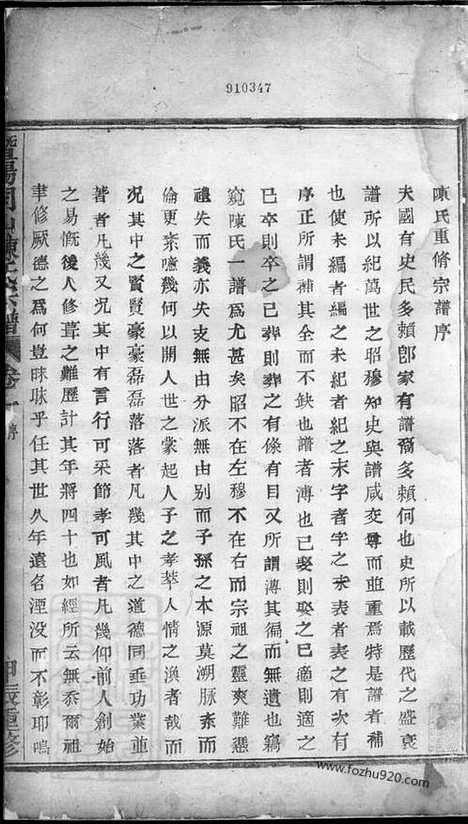 910347
陳氏重脩宗譜序
夫國有史民多賴郎家有譜裔多賴何也史所以載歷代之盛衰
譜所以紀萬世之昭穆知史與譜咸交尊而並重焉特是譜者補
也使未編者編之未紀者紀之未字者字之未表者表之有次有
序正所謂補其全而不缺也譜者溥也已娶則娶之已適則適之
已卒則卒之已葬則葬之有條有目又所謂溥其徧而無遺也竊
窺陳氏一譜為尤甚矣昭不在左穆不在右而宗祖之靈爽難憑
禮失而義亦失支無由分派無由別而子孫之本源莫溯脉紊而
倫更紊噫幾何以開人世之蒙起人子之孝萃人情之渙者哉而
況其中之賢賢豪豪磊磊落落者凡幾其中之道德同垂功業並
著者凡幾又況其中有言行可采節孝可風者凡幾仰前人創始
之易慨後人修葺之難歷計其年將四十也如經所云無忝爾祖
聿修厥德之為何豈昧昧乎任其世久年遠名湮没而不彰耶嗚
陳氏宗譜 卷一 序
重修
www.fozhu920.com